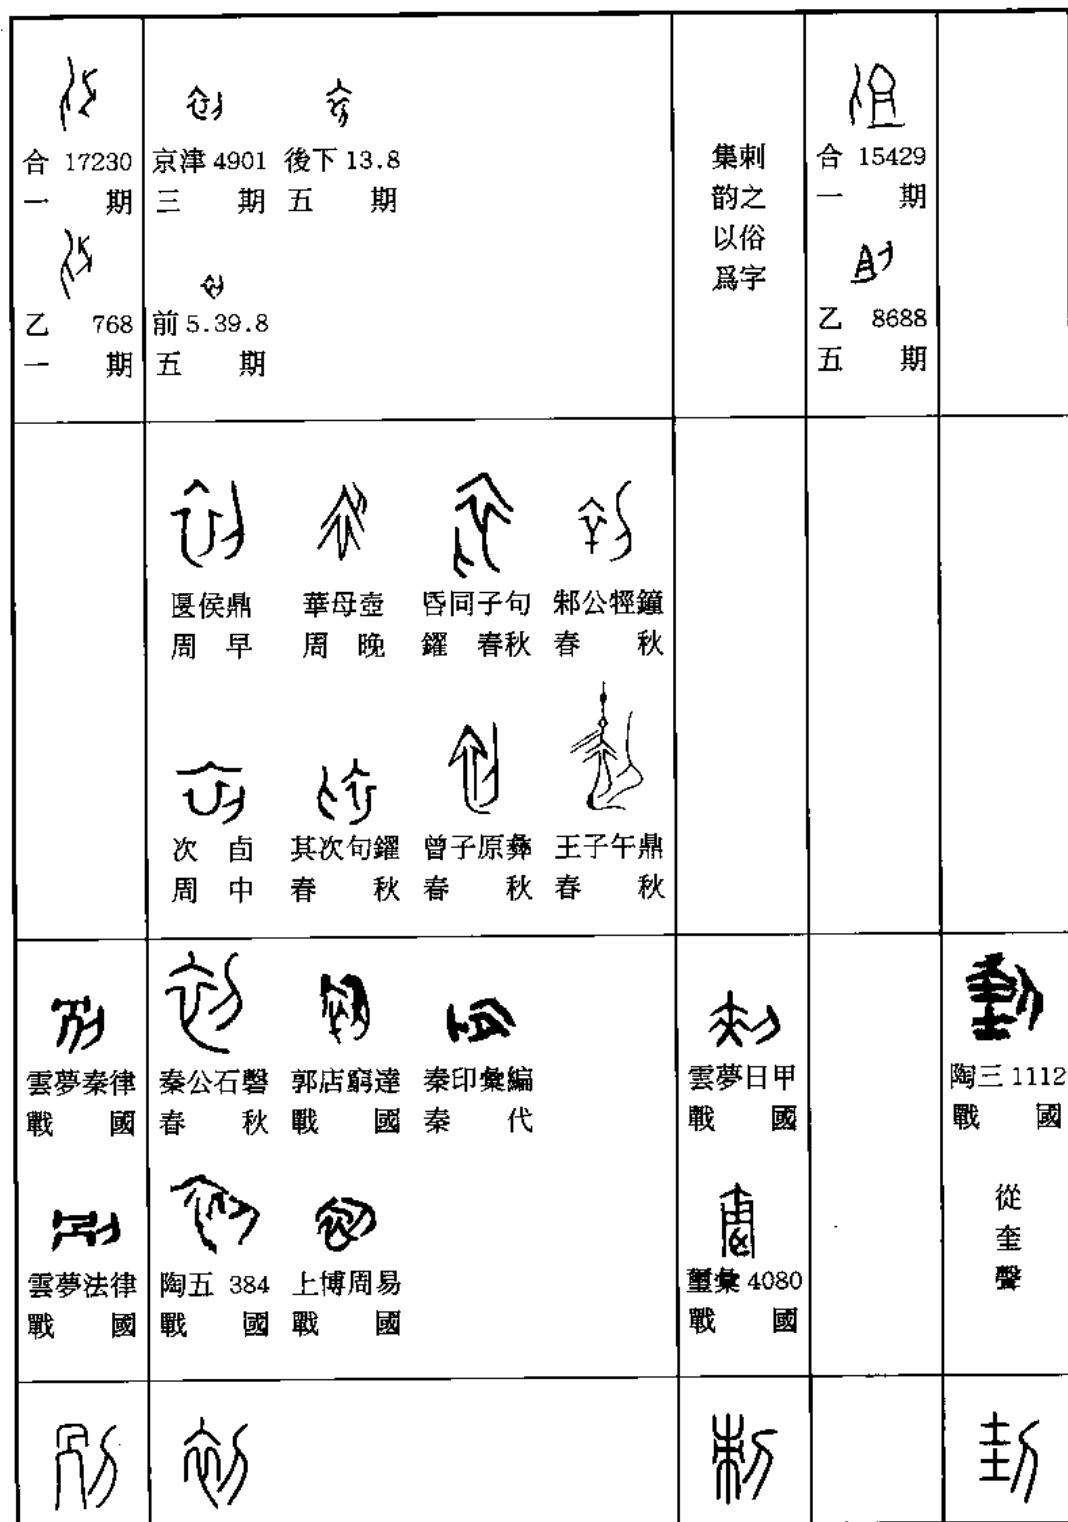 合 17230
一 期
乙 768
一 期
京津 4901
三 期
後下 13.8
五 期
前 5.39.8
五 期
刺之俗字
集韵以爲
合 15429
一 期
乙 8688
五 期
匽侯鼎
周 早
華母壺
周 晚
昏同子句
鑃 春秋
邾公牼鐘
春 秋
次 卣
周 中
其次句鑃
春 秋
曾子原彝
春 秋
王子午鼎
春 秋
雲夢秦律
戰 國
雲夢法律
戰 國
秦公石磬
春 秋
郭店窮達
戰 國
秦印彙編
秦 代
陶五 384
戰 國
上博周易
戰 國
雲夢日甲
戰 國
璽彙 4080
戰 國
陶三 1112
戰 國
從奎聲